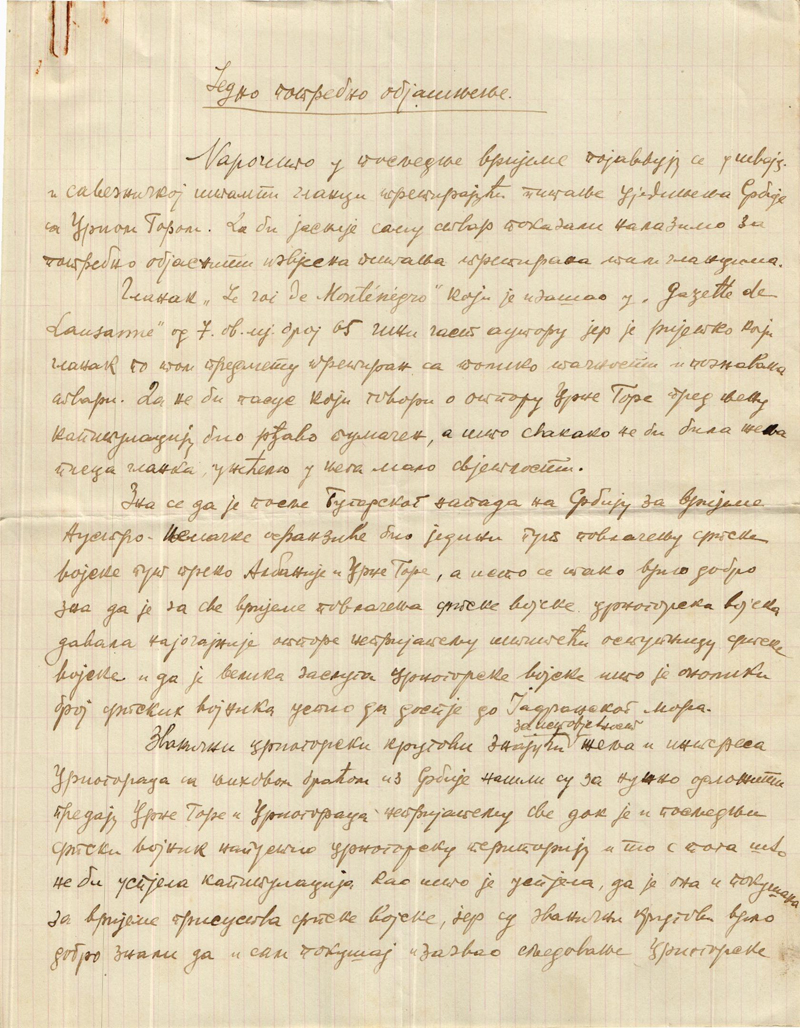 Једно потребно објашњење.
Нарочито у последње вријеме појављују се у швајц.
и савезничкој штампи чланци третирајући питање уједињења Србије
са Црном Гором. Да би јасније саму ствар показали налазимо за
потребно објаснити извјесна питања третирана тим чланцима.
Чланак „Le roi de Monténégro" који је изашао у „Gazette de
Lausanne" од 7. ов. мј. број 65 чини част аутору јер је ријетко који
чланак по том предмету третиран са толико тачности и познавања
ствари. Да не би пасус који говори о отпору Црне Горе пред њену
капитулацију био рђаво тумачен, а што свакако не би била жеља
писца чланка, унећемо у њега мало свјетлости.
Зна се да је после Бугарског напада на Србију за вријеме
Аустро-Њемачке офанзиве био једини пут повлачењу српске
војске пут преко Албаније и Црне Горе, а исто се тако врло добро
зна да је за све вријеме повлачења српске војске црногорска војска
давала најочајније отпоре непријатељу штитећи одступницу српске
војске и да је велика заслуга црногорске војске што је онолики
број српских војника успио да доспје до Јадранског Мора.
Званични црногорски кругови знајући за истовјетност жеља и интереса
Црногораца са њиховом браћом из Србије нашли су за нужно одложити
предају Црне Горе и Црногораца непријатељу све док је и последњи
српски војник напустио црногорску територију и то с тога што
не би успјела капитулација као што је успјела, да је она и покушана
за вријеме присуства српске војске, јер су званични кругови врло
добро знали да и сам покушај изазвао следовање Црногорске